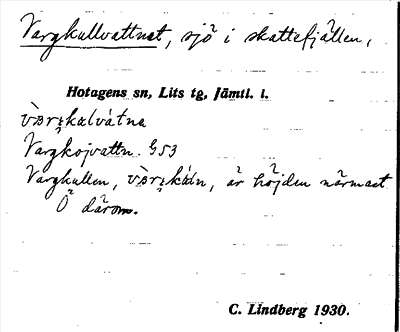 Vargkullvattnet, sjö i skattefjällen,
Hotagens sn, Lits tg, Jämtl. l.
vàrı̨kalvátna
Vargkojvattn. G53
Vargkullen, vàrı̨káln, är höjden närmast
Ö därom.
C. Lindberg 1930.